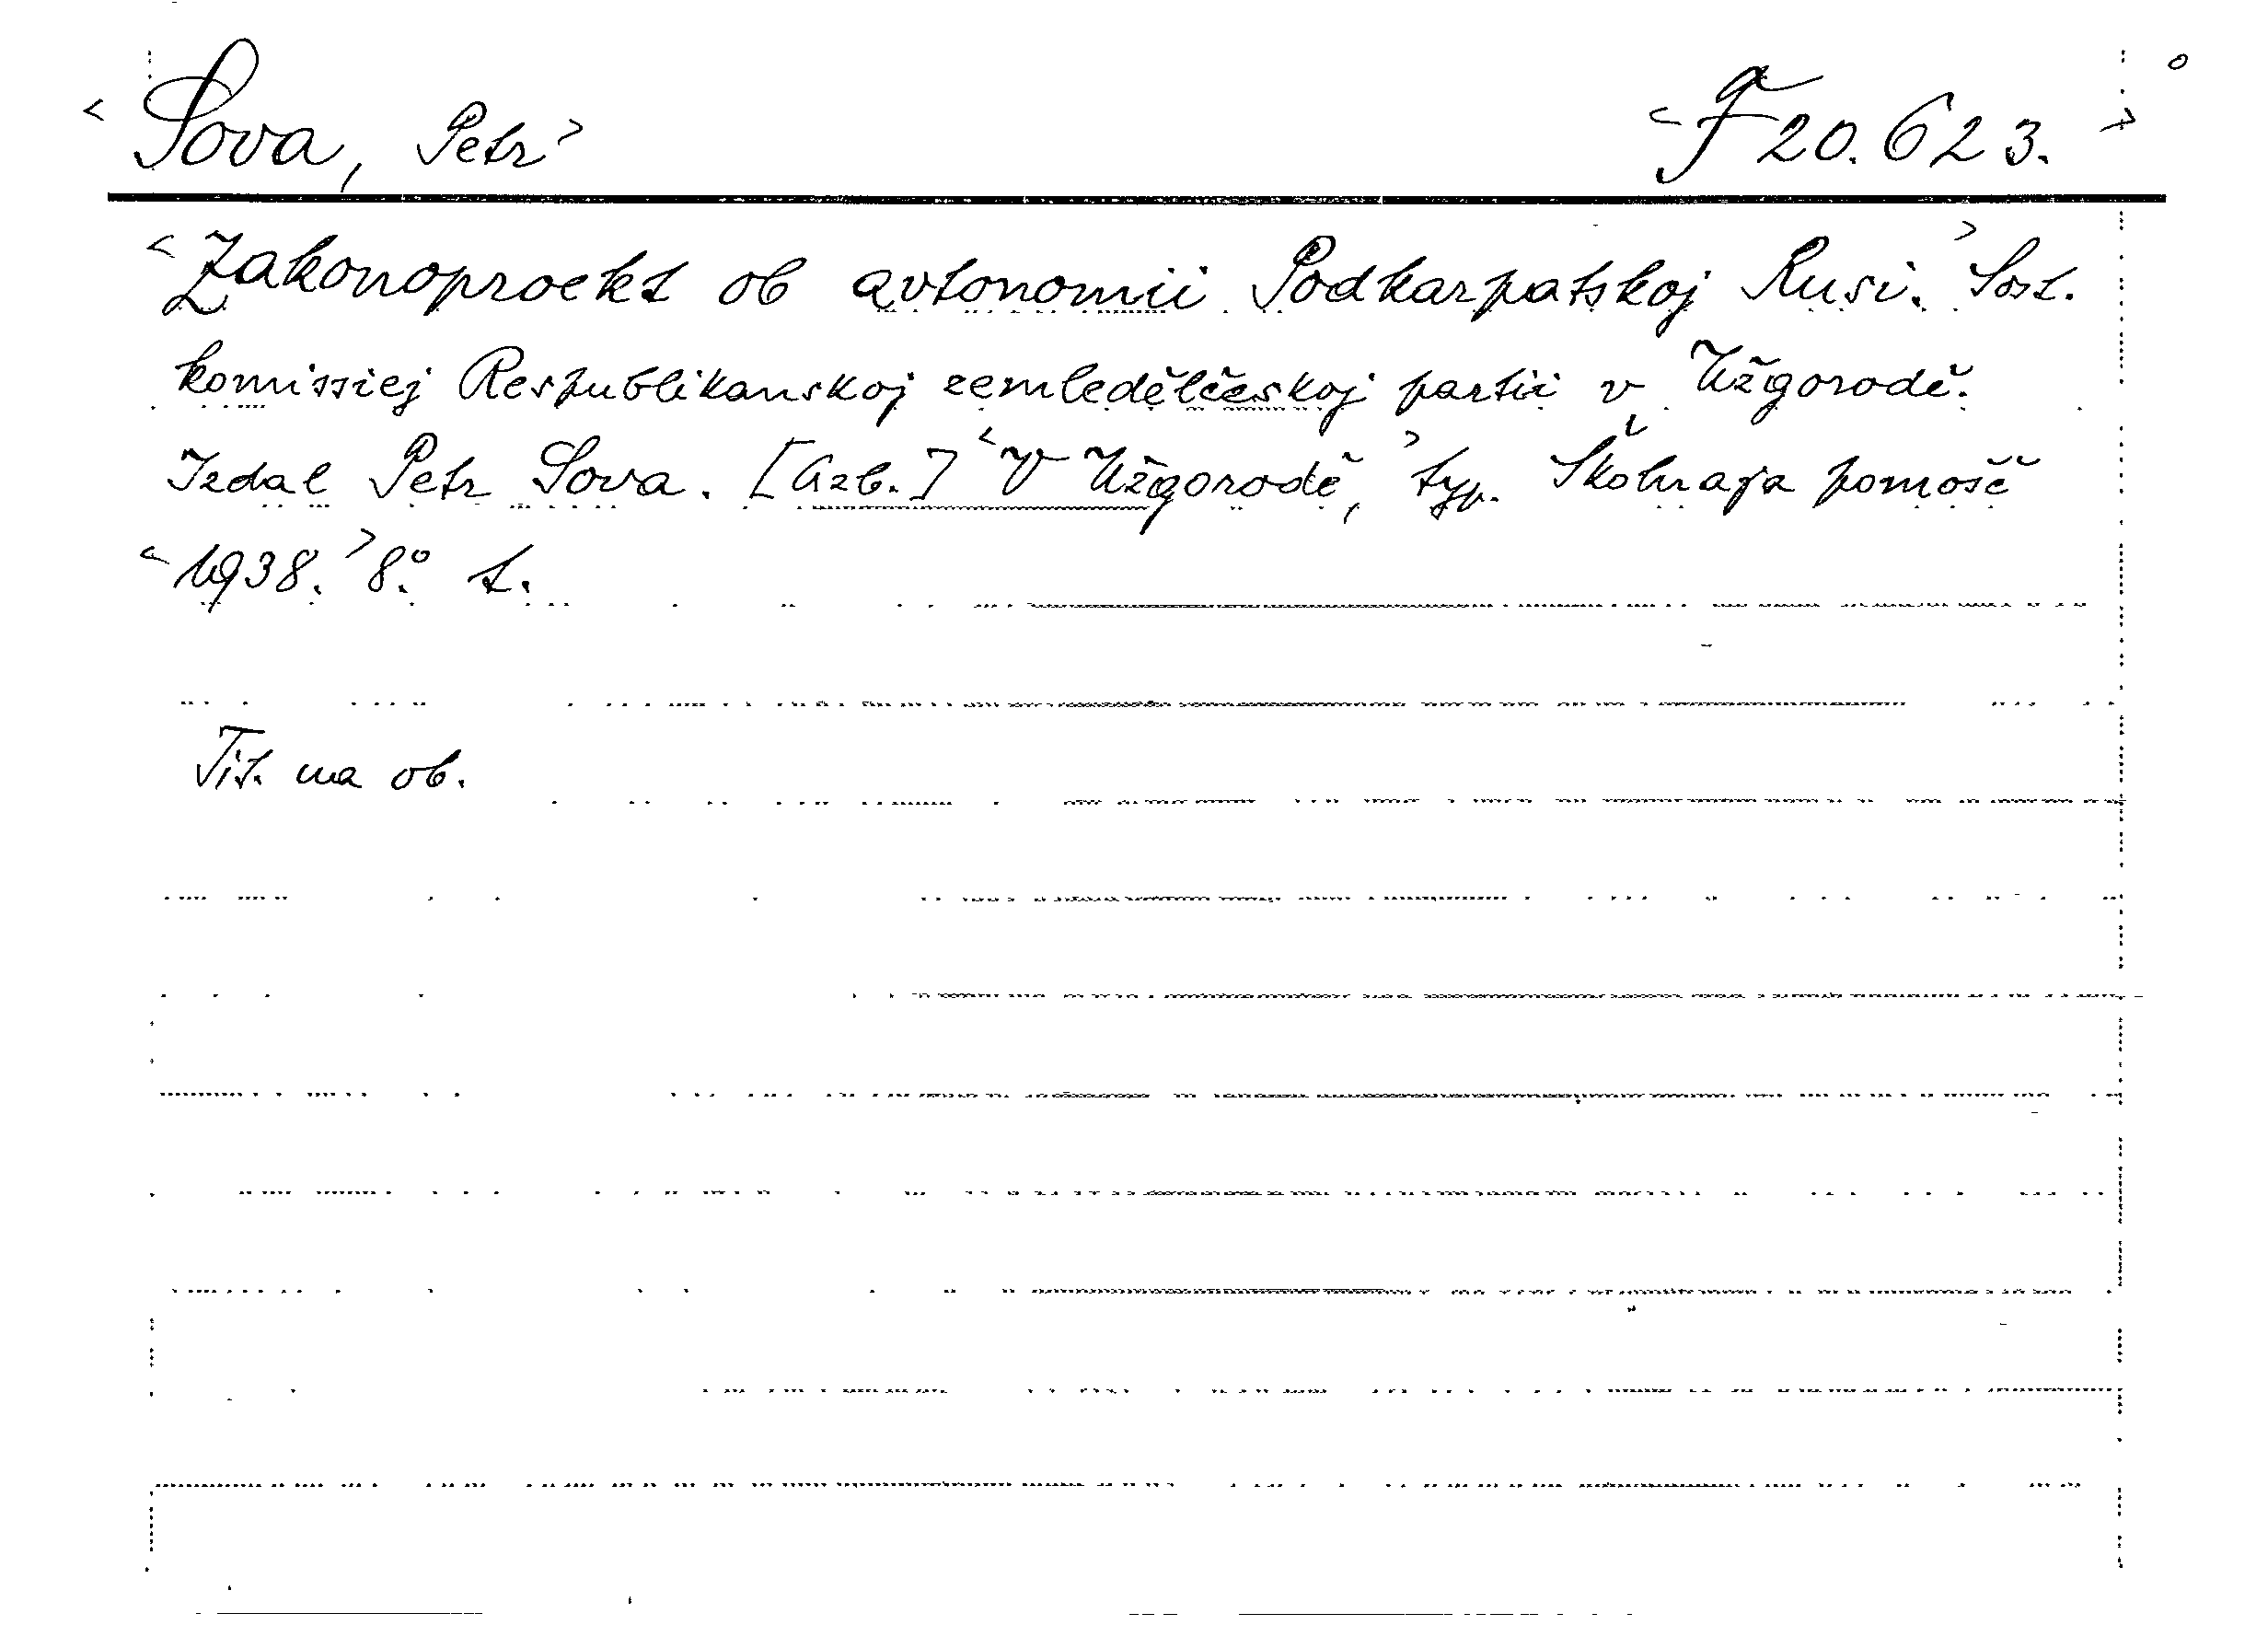 <Sova, Petr> <F 20.623.>
<Zakonoproekt ob avtonomii Podkarpatskoj Rusi.> Sost.
komissiej Respublikanskoj zemledělčeskoj partii v Užgorodě.
Izdal Petr Sova. [Azb.] <V Užgorodě,> typ. Školnaja pomošč
<1938.> 8° t.
Tit. na ob.